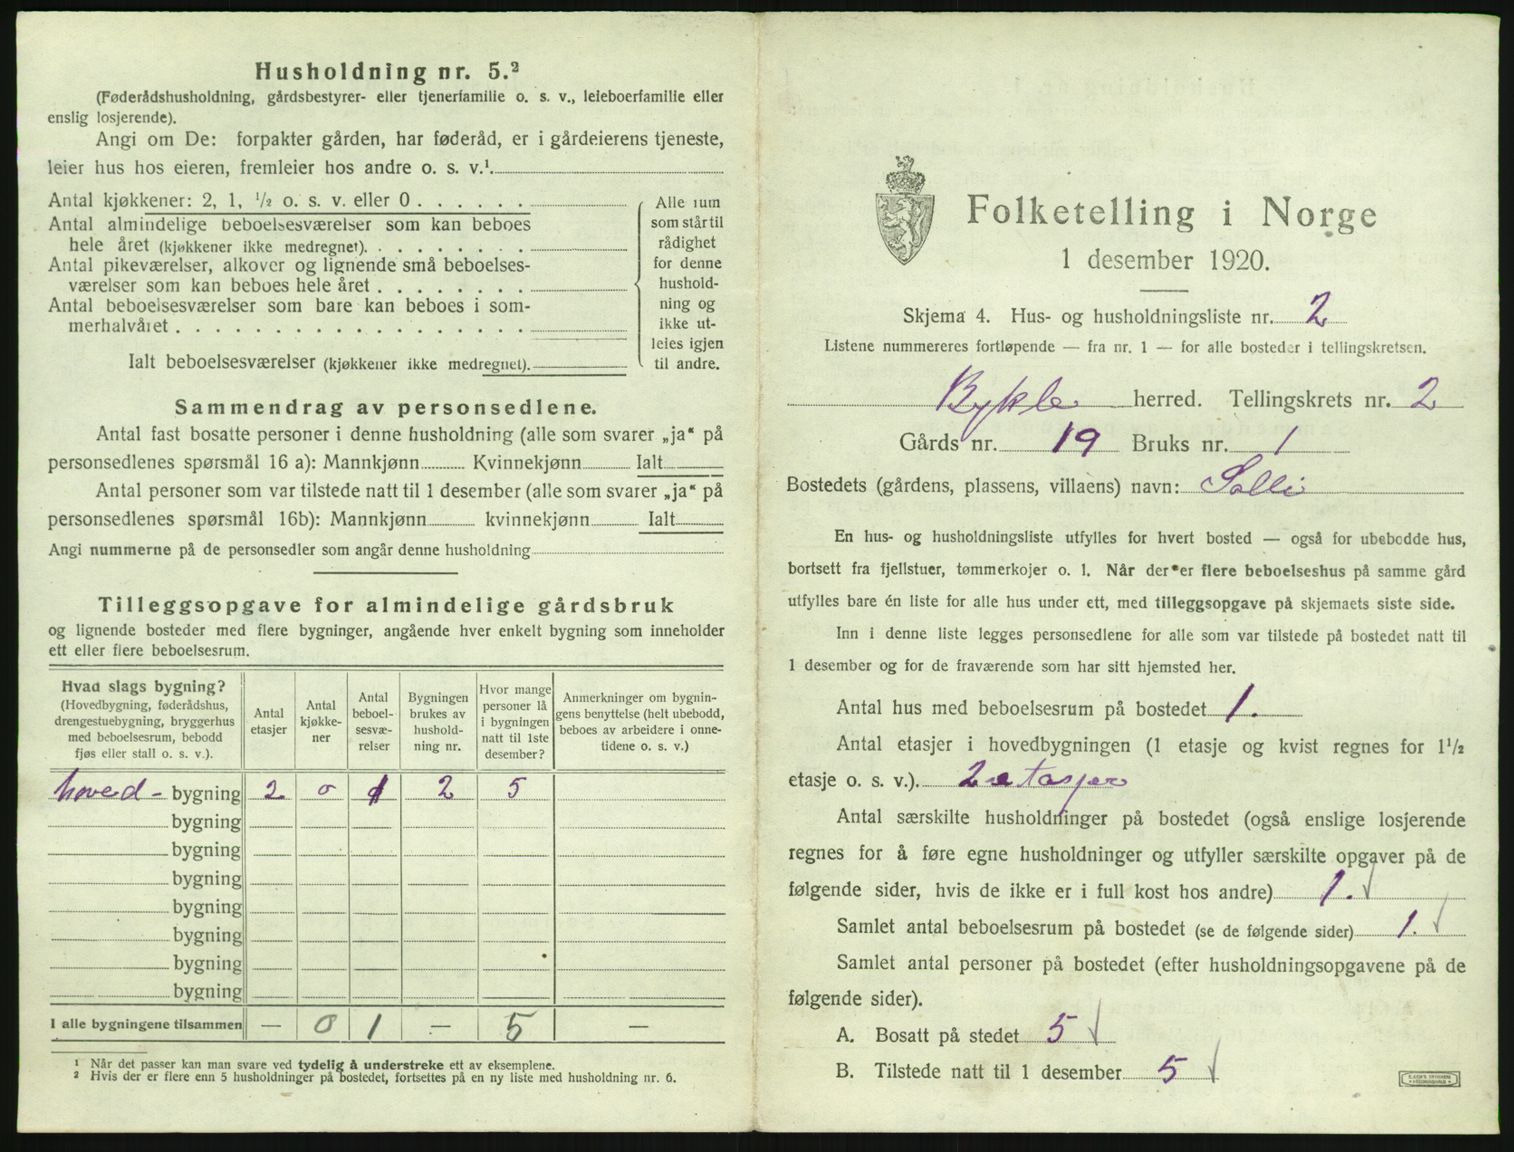 Husholdning nr. 5.²
(Føderådshusholdning, gårdsbestyrer- eller tjenerfamilie o. s. v., leieboerfamilie eller
enslig losjerende).
Angi om De: forpakter gården, har føderåd, er i gårdeierens tjeneste,
leier hus hos eieren, fremleier hos andre o. s. v.¹
Antal kjøkkener: 2, 1, ½ o. s. v. eller 0
Antal almindelige beboelsesværelser som kan beboes
hele året (kjøkkener ikke medregnet).
Antal pikeværelser, alkover og lignende små beboelses-
værelser som kan beboes hele året
Antal beboelsesværelser som bare kan beboes i som-
merhalvåret
Ialt beboelsesværelser (kjøkkener ikke medregnet).
Alle rum
som står til
rådighet
for denne
hushold-
ning og
ikke ut-
leies igjen
til andre.
Sammendrag av personsedlene.
Antal fast bosatte personer i denne husholdning (alle som svarer „ja“ på
personsedlenes spørsmål 16 a): Mannkjønn Kvinnekjønn Ialt
Antal personer som var tilstede natt til 1 desember (alle som svarer „ja“ på
personsedlenes spørsmål 16b): Mannkjønn kvinnekjønn Ialt
Angi nummerne på de personsedler som angår denne husholdning
Tilleggsopgave for almindelige gårdsbruk
og lignende bosteder med flere bygninger, angående hver enkelt bygning som inneholder
ett eller flere beboelsesrum.
Hvad slags bygning?
(Hovedbygning, føderådshus,
drengestuebygning, bryggerhus
med beboelsesrum, bebodd
fjøs eller stall o. s. v.).
Antal
etasjer
Antal
kjøkke-
ner
Antal
beboel-
sesvæ-
relser
Bygningen
brukes av
hushold-
ning nr.
Hvor mange
personer lå
i bygningen
natt til 1ste
desember?
Anmerkninger om bygnin-
gens benyttelse (helt ubebodd,
beboes av arbeidere i onne-
tidene o. s. v.)
hoved- bygning 2 0 1 2 5
bygning
bygning
bygning
bygning
bygning
bygning
bygning
I alle bygningene tilsammen — 0 1 — 5 —
¹ Når det passer kan man svare ved tydelig å understreke ett av eksemplene.
² Hvis der er flere enn 5 husholdninger på bostedet, fortsettes på en ny liste med husholdning nr. 6.
Folketelling i Norge
1 desember 1920.
Skjema 4. Hus- og husholdningsliste nr. 2
Listene nummereres fortløpende — fra nr. 1 — for alle bosteder i tellingskretsen.
Bykle herred. Tellingskrets nr. 2
Gårds nr. 19 Bruks nr. 1
Bostedets (gårdens, plassens, villaens) navn: Solli
En hus- og husholdningsliste utfylles for hvert bosted — også for ubebodde hus,
bortsett fra fjellstuer, tømmerkojer o. l. Når der er flere beboelseshus på samme gård
utfylles bare én liste for alle hus under ett, med tilleggsopgave på skjemaets siste side.
Inn i denne liste legges personsedlene for alle som var tilstede på bostedet natt til
1 desember og for de fraværende som har sitt hjemsted her.
Antal hus med beboelsesrum på bostedet 1.
Antal etasjer i hovedbygningen (1 etasje og kvist regnes for 1½
etasje o. s. v.). 2 etasjer
Antal særskilte husholdninger på bostedet (også enslige losjerende
regnes for å føre egne husholdninger og utfyller særskilte opgaver på de
følgende sider, hvis de ikke er i full kost hos andre) 1. √
Samlet antal beboelsesrum på bostedet (se de følgende sider) 1. √
Samlet antal personer på bostedet (efter husholdningsopgavene på de
følgende sider).
A. Bosatt på stedet 5 √
B. Tilstede natt til 1 desember 5 √